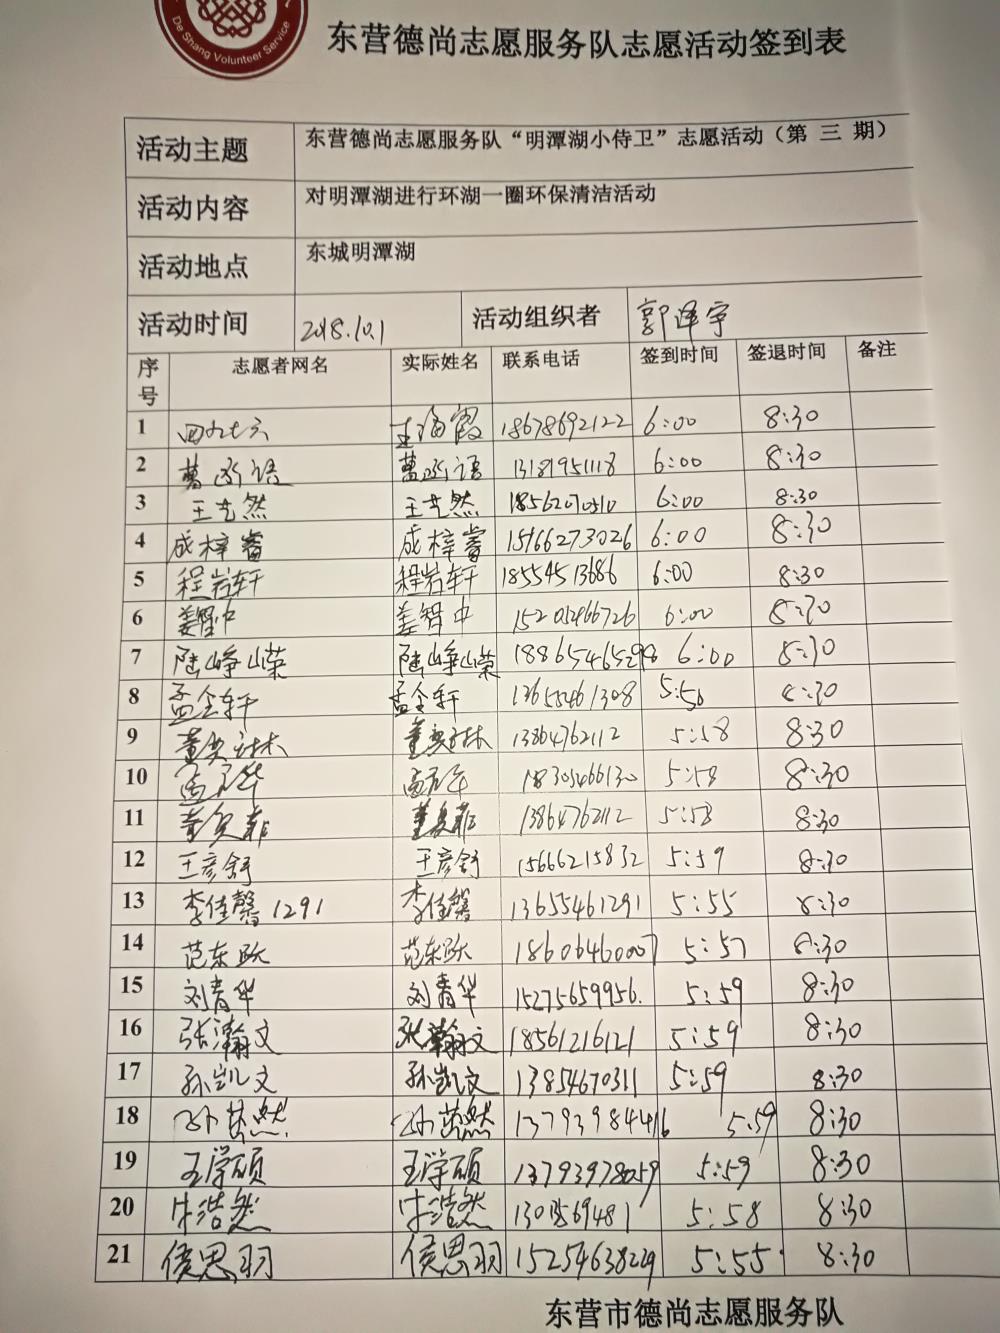 De Shang Volunteer Service
东营德尚志愿服务队志愿活动签到表
活动主题 东营德尚志愿服务队“明潭湖小侍卫”志愿活动（第 三 期）
活动内容 对明潭湖进行环湖一圈环保清洁活动
活动地点 东城明潭湖
活动时间 2018.10.1 活动组织者 郭泽宇
序号 志愿者网名 实际姓名 联系电话 签到时间 签退时间 备注
1 四九七六 王海霞 18678692122 6:00 8:30
2 葛函语 葛函语 13181951118 6:00 8:30
3 王艺然 王艺然 18562070510 6:00 8:30
4 成梓睿 成梓睿 15966273026 6:00 8:30
5 程岩轩 程岩轩 18554513686 6:00 8:30
6 姜智中 姜智中 6:00 8:30
7 陆峥嵘 陆峥嵘 6:00 8:30
8 孟令轩 孟令轩 5:50 8:30
9 13864762112 5:58 8:30
10 18305466130 5:58 8:30
11 13864762112 5:58 8:30
12 王彦舒 王彦舒 15666215832 5:59 8:30
13 李佳馨1291 李佳馨 13655461291 5:55 8:30
14 范东跃 范东跃 18606460007 5:57 8:30
15 刘青华 刘青华 15275659956. 5:59 8:30
16 张瀚文 张瀚文 18561216121 5:59 8:30
17 孙凯文 孙凯文 13854670311 5:59 8:30
18 5:59 8:30
19 王学硕 王学硕 13793978059 5:59 8:30
20 牛浩然 牛浩然 5:58 8:30
21 侯思羽 侯思羽 15254638229 5:55 8:30
东营市德尚志愿服务队